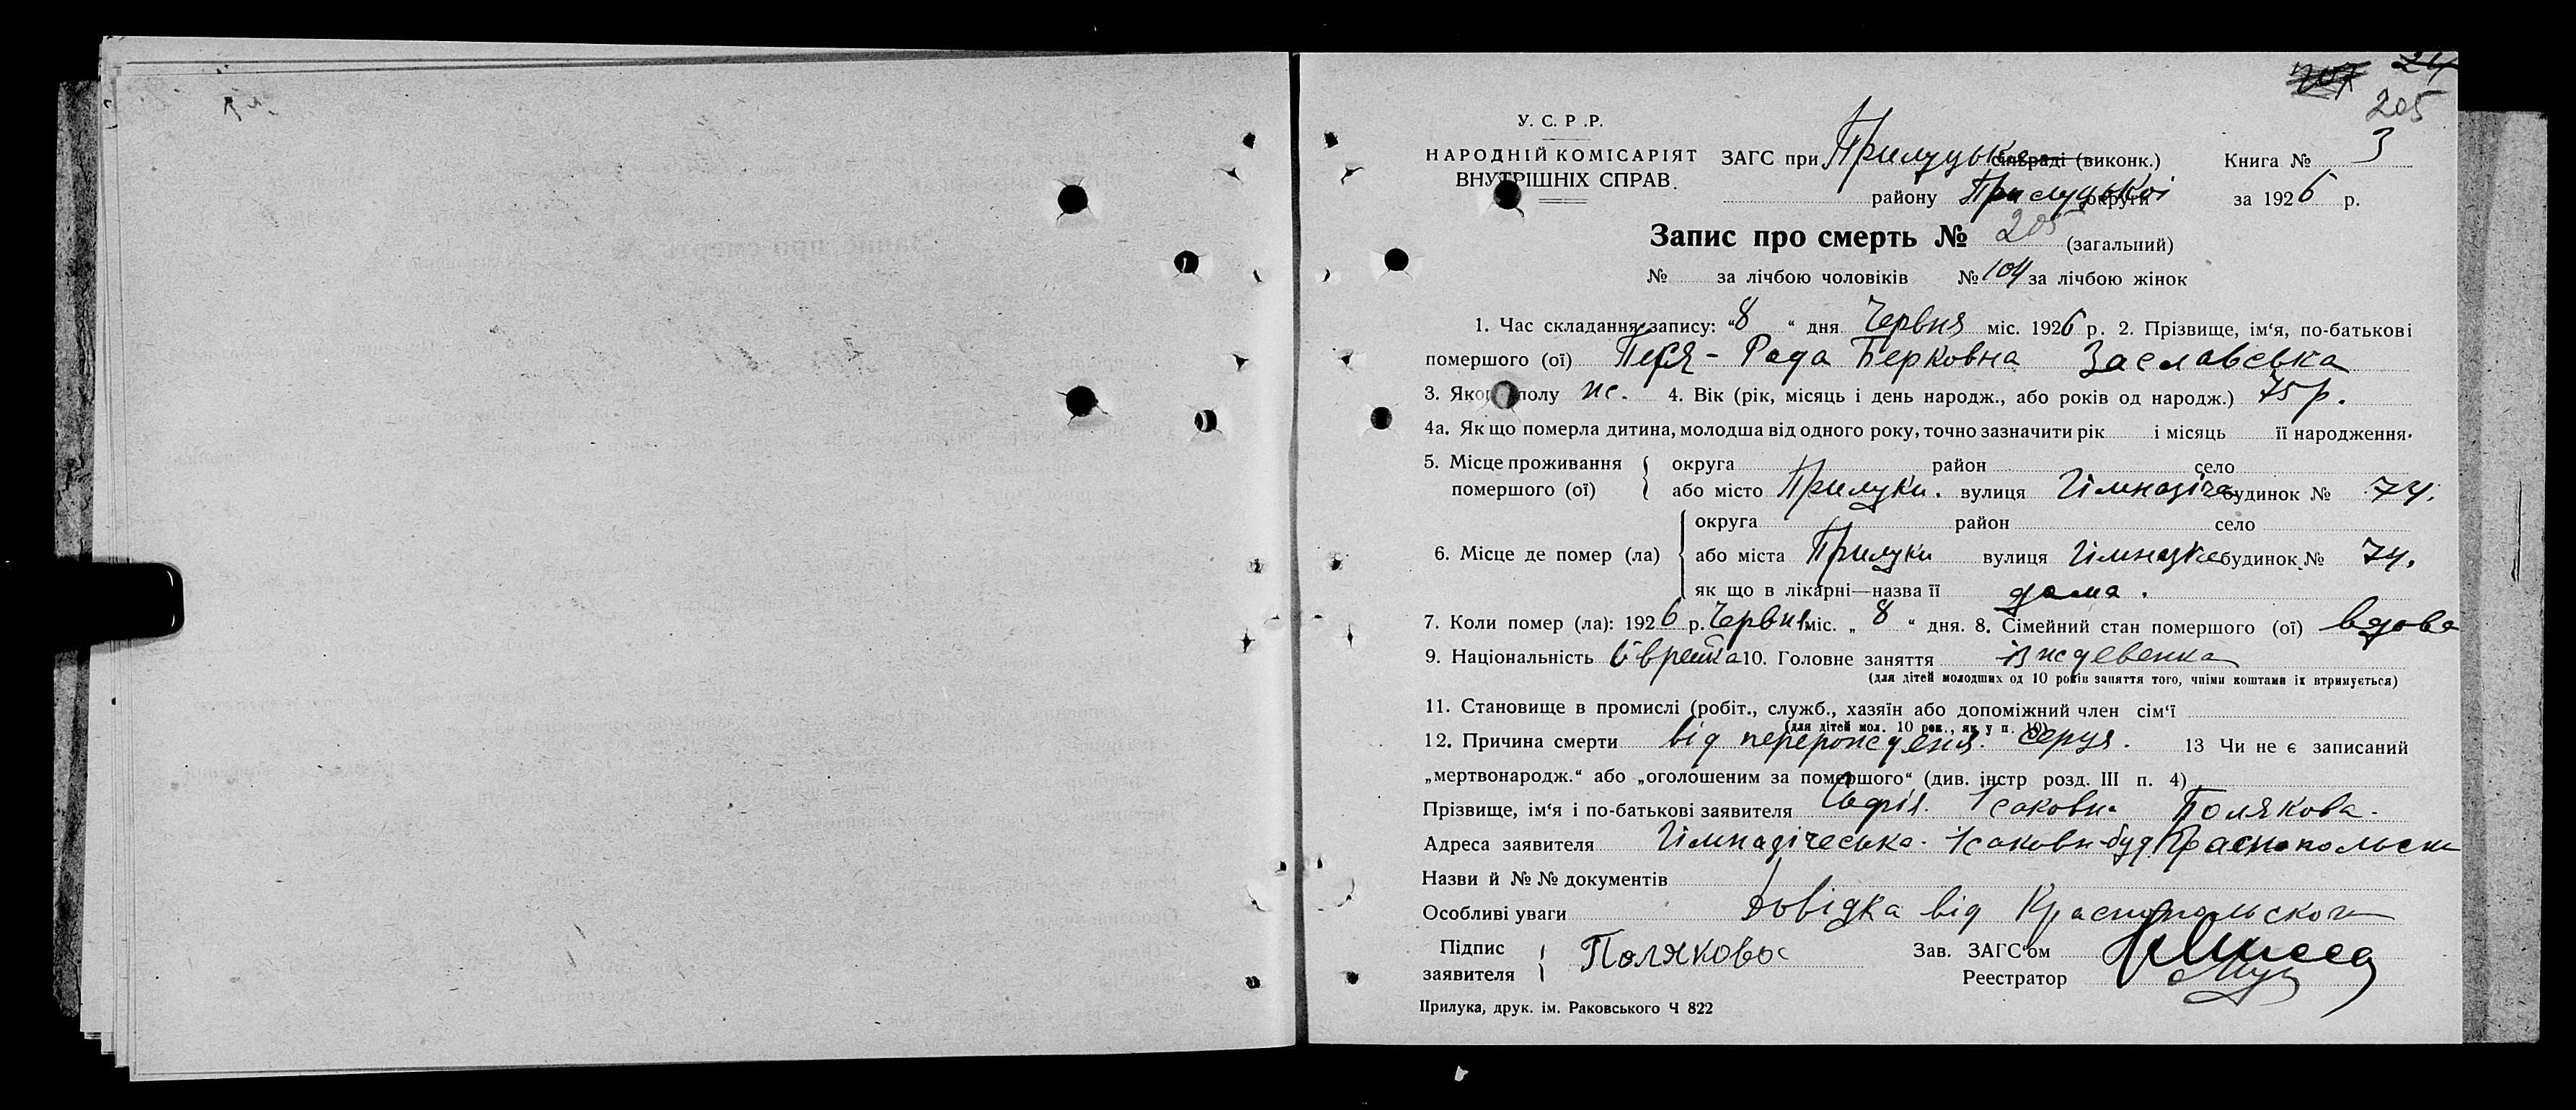 24
205
У. С. Р. Р.
НАРОДНІЙ КОМІСАРІЯТ
ВНУТРІШНІХ СПРАВ.
ЗАГС при Прилуцьк сільраді (виконк.) Книга № 3
району Прилуцької округи за 1926 р.
Запис про смерть № 205 (загальний)
№ за лічбою чоловіків № 104 за лічбою жінок
1. Час складання запису: “8“ дня Червня міс. 1926 р. 2. Прізвище, ім‘я, по-батькові
помершого (ої) Песя - Рада Берковна Заславська
3. Якого полу ж. 4. Вік (рік, місяць і день народж., або років од народж.) 75 р.
4а. Як що померла дитина, молодша від одного року, точно зазначити рік і місяць її народження.
5. Місце проживання округа район село
помершого (ої) або місто Прилуки. вулиця будинок № 74.
округа район село
6. Місце де помер (ла) або міста Прилуки вулиця будинок № 74.
як що в лікарні—назва її дома.
7. Коли помер (ла): 1926 р. Червня міс. „8“ дня. 8. Сімейний стан помершого (ої) вдова
9. Національність Єврейка 10. Головне заняття Іждевенка
(для дітей молодших од 10 років заняття того, чиїми коштами їх втримується)
11. Становище в промислі (робіт., служб., хазяїн або допоміжний член сім‘ї
(для дітей мол. 10 рок., як у п. 10)
12. Причина смерти від перерождения серця. 13 Чи не є записаний
„мертвонародж.“ або „оголошеним за помершого“ (див. інстр розд. III п. 4)
Прізвище, ім‘я і по-батькові заявителя Ісаковн Полякова.
Адреса заявителя Гімназічеська. буд Краснопольск
Назви й № № документів
Особливі уваги Довідка від Краснопольского
Підпис
заявителя Полякова Зав. ЗАГС‘ом
Реестратор
Прилука, друк. ім. Раковського Ч 822